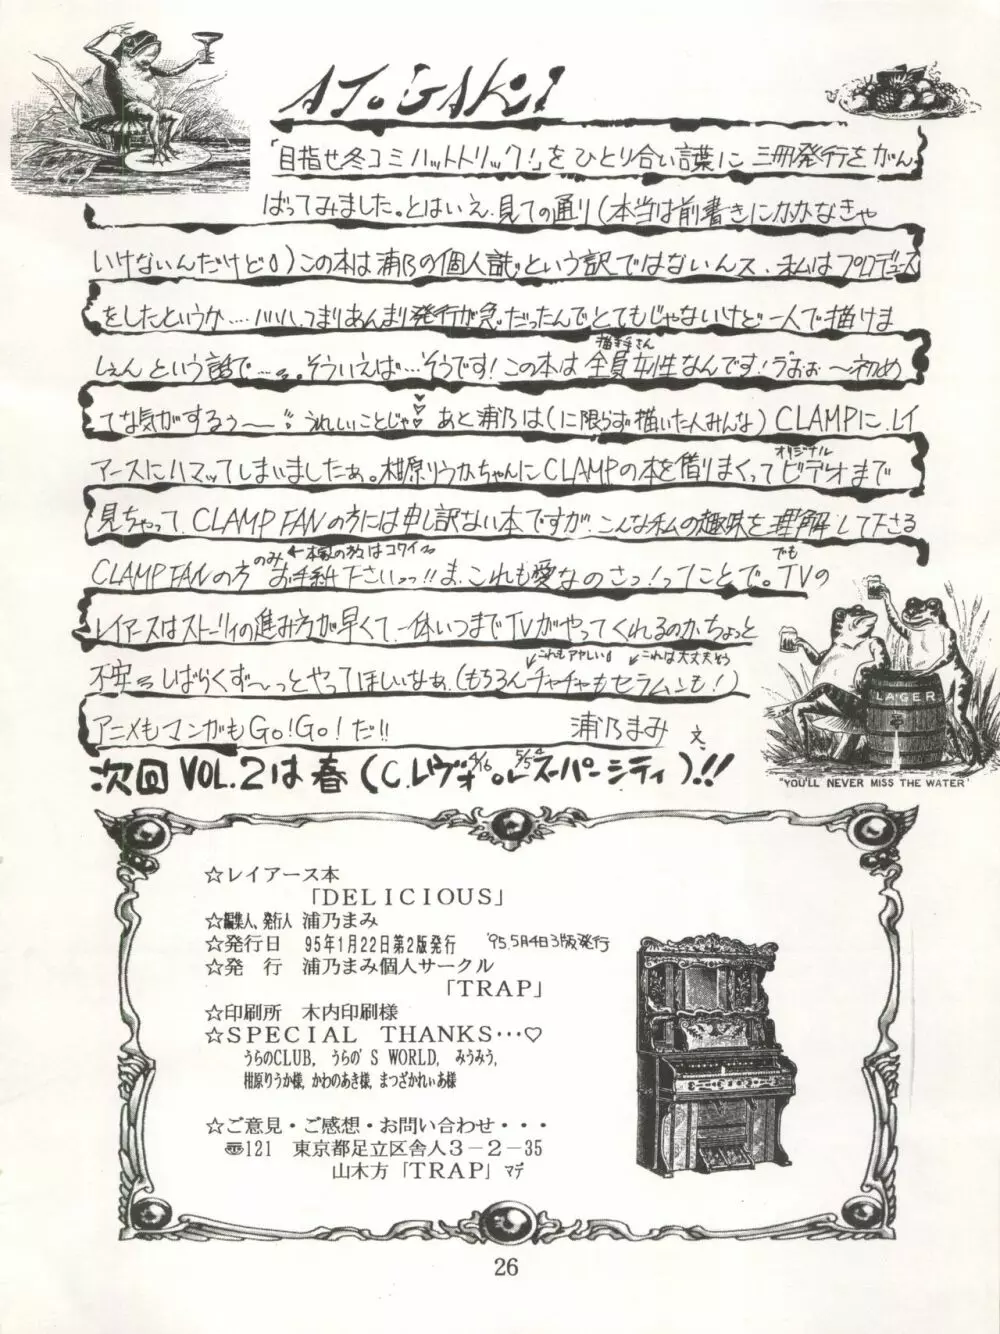 ATOGAKI
「目指せ冬コミハットトリック!」をひとり合い言葉に 三冊発行をがん
ばってみました。とはいえ、見ての通り(本当は前書きにかかなきゃ
いけないんだけど)この本は浦乃の個人誌という訳ではないんス、私はプロデュース
をしたというか‥‥ハハハ、つまりあんまり発行が急だったんでとてもじゃないけど一人で描けま
しぇんという話で‥‥。そういえば…そうです!この本は全員女性なんです!うおぉ〜初め
描き手さん
てな気がするぅ〜〜 うれしいことじゃ♥ あと浦乃は(に限らず描いた人みんな) CLAMPに、レイ
アースにハマッてしまいましたぁ。柑原りうかちゃんにCLAMPの本を借りまくってビデオまで
オリジナル
見ちゃって、CLAMP FANの方には申し訳ない本ですが、こんな私の趣味を理解して下さる
CLAMP FANの方のみ お手紙下さいっっ!!ま、これも愛なのさっ!ってことで。でもTVの
←本家の方はコワイ
レイアースはストーリィの進み方が早くて、一体いつまでTVがやってくれるのか、ちょっと
不安 しばらくず〜〜っとやってほしいなぁ。(もちろんチャチャもセラムンも!)
これもアヤしい
これは大丈夫そう
アニメもマンガもGo!Go!だ!! 浦乃まみ 文
次回 VOL.2は 春 (C.レヴォ 4/16 or スーパーシティ 5/4 5)!!
LAGER
"YOU'LL NEVER MISS THE WATER"
☆レイアース本
「DELICIOUS」
☆編集人、発行人 浦乃まみ
☆発行日 95年1月22日第2版発行 '95.5月4日3版発行
☆発 行 浦乃まみ個人サークル
「TRAP」
☆印刷所 木内印刷様
☆SPECIAL THANKS…♡
うらのCLUB, うらの'S WORLD, みうみう,
柑原りうか様, かわのあき様, まつざかれぃあ様
☆ご意見・ご感想・お問い合わせ・・・
〠121 東京都足立区舎人3−2−35
山木方「TRAP」マデ
26